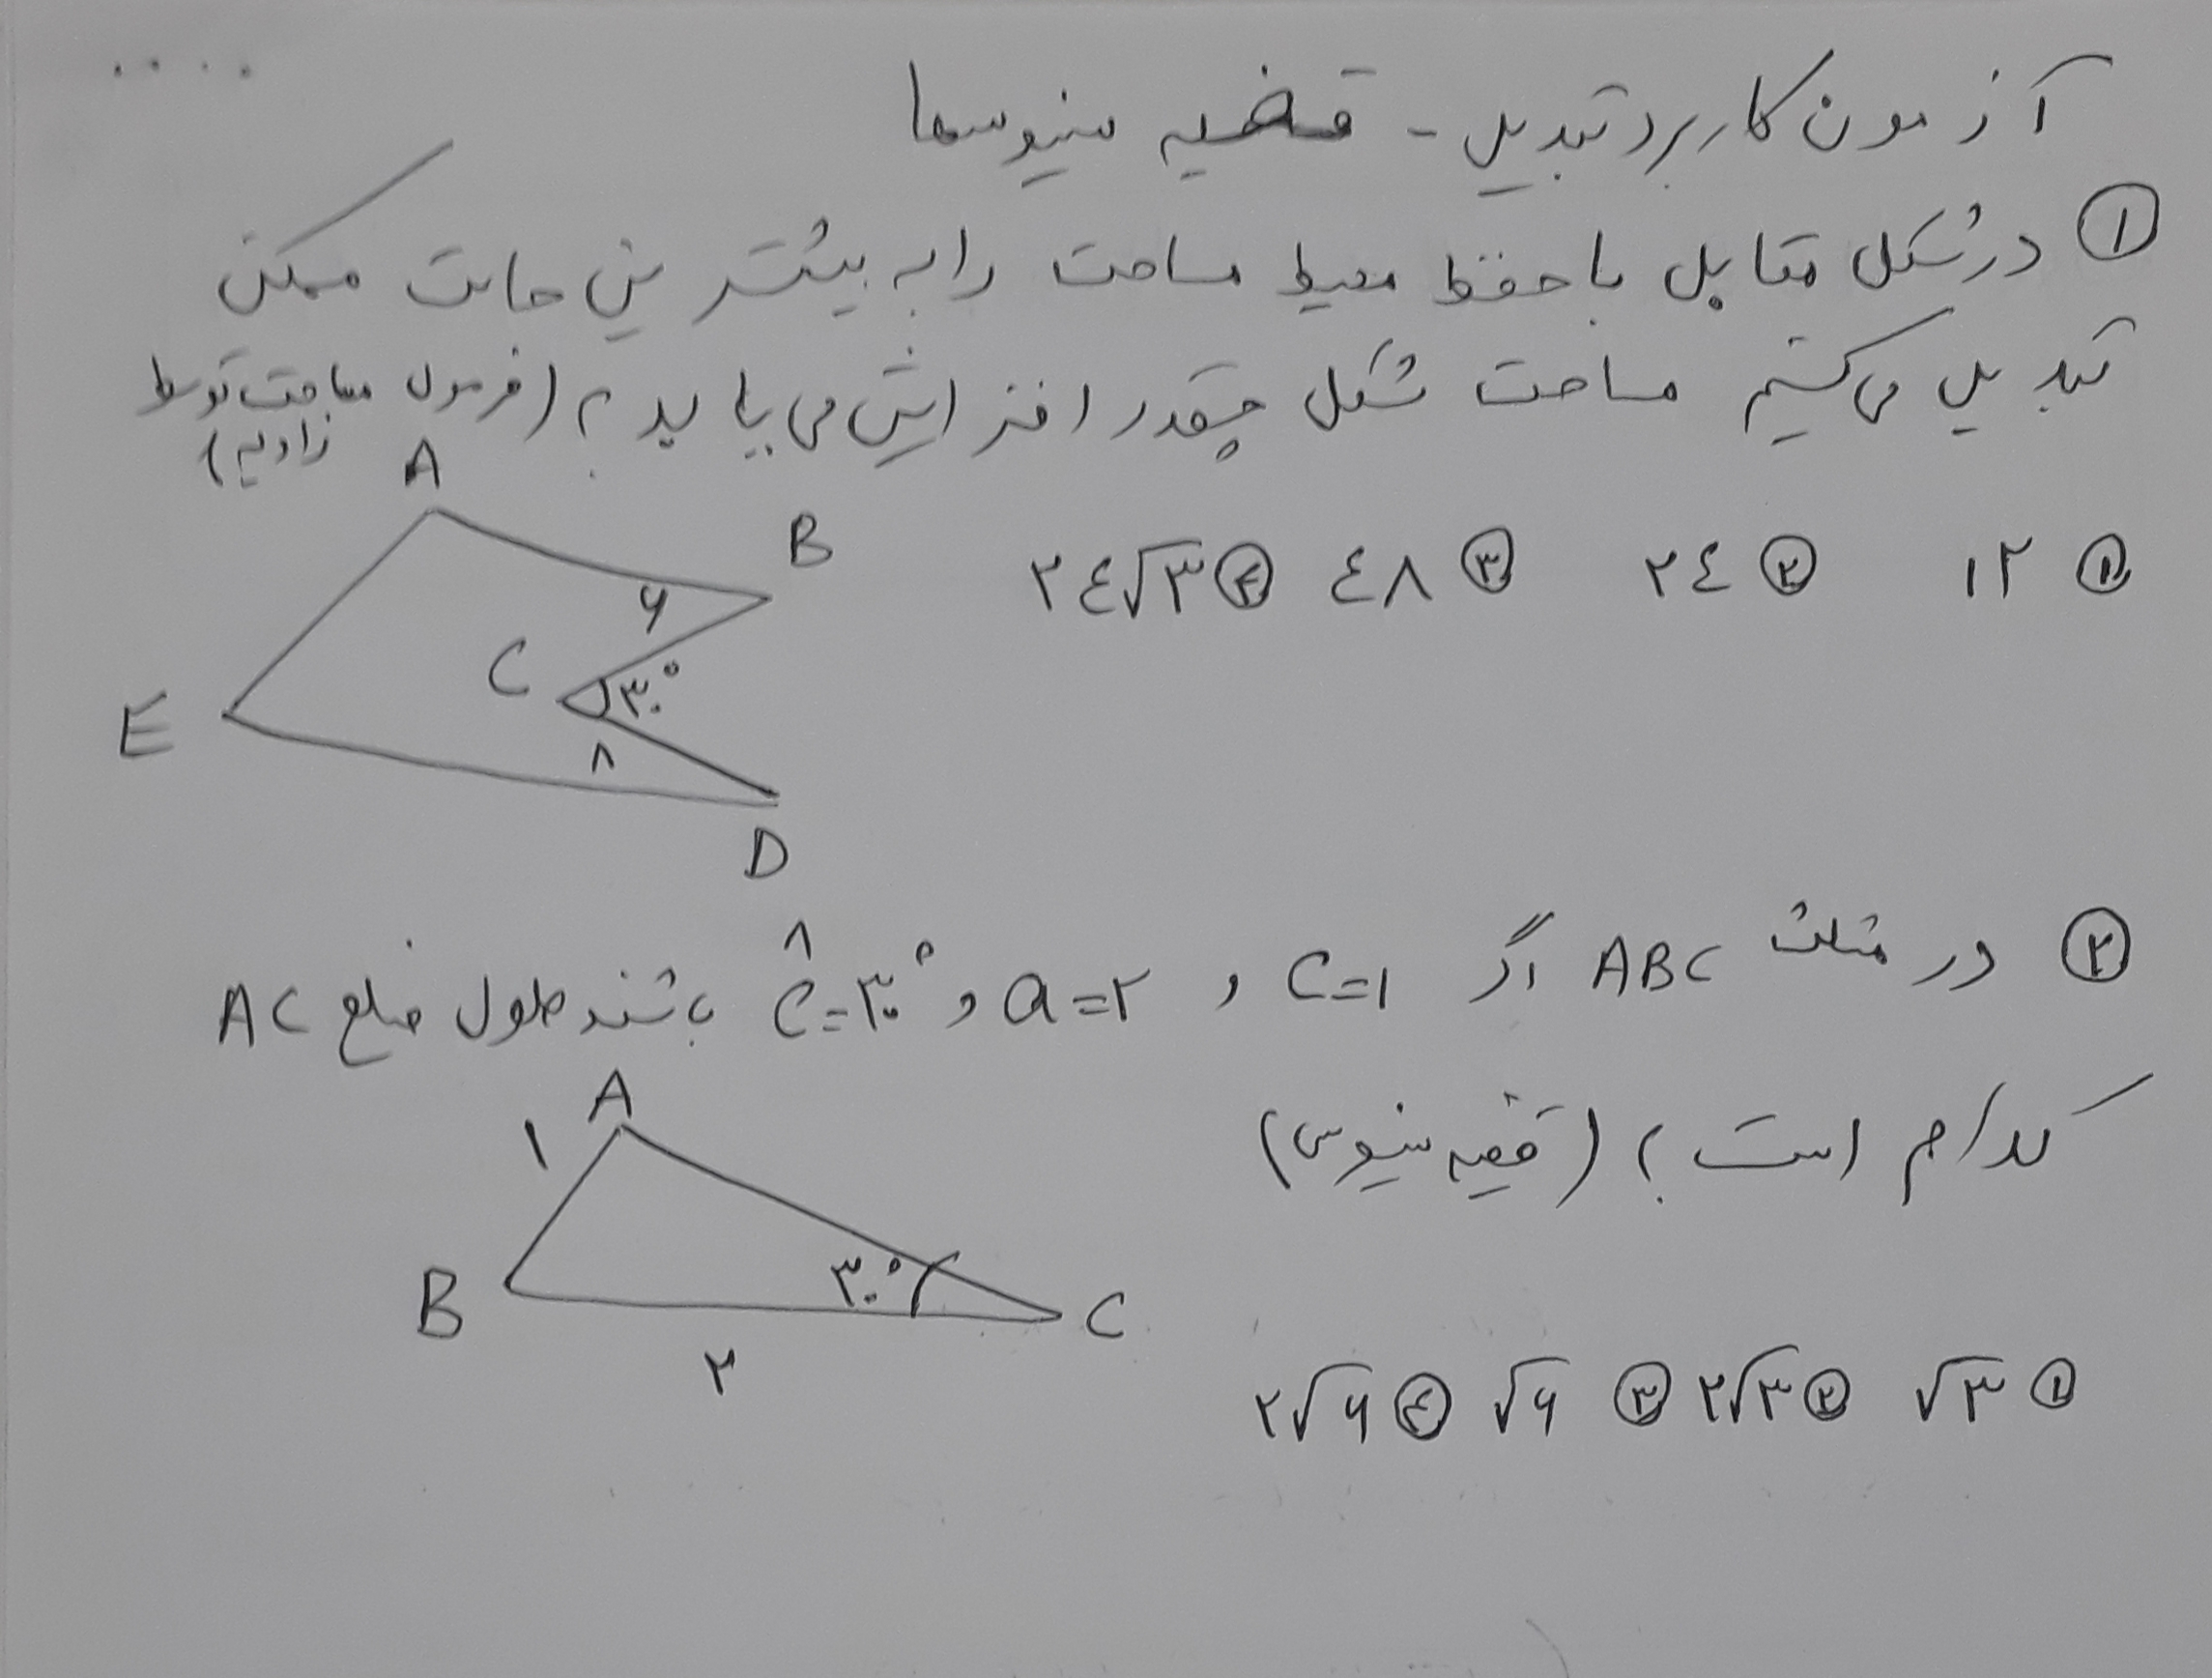 آزمون کاربرد تبدیل - قضیه سینوسها
۱ در شکل مقابل با حفظ محیط مساحت را به بیشترین حالت ممکن
تبدیل می‌کنیم مساحت شکل چقدر افزایش می‌یابد؟ (فرمول مساحت توسط
زاویه)
۱ ۱۲ ۲ ۲۴ ۳ ۴۸ ۴ ۲۴√۳
A
B
۶
C
۳۰°
E
۸
D
۲ در مثلث ABC اگر c=۱ و a=۲ و Ĉ=۳۰° باشند طول ضلع AC
کدام است؟ (قضیه سینوس)
A
۱
۳۰°
B
C
۲
۱ √۳ ۲ ۲√۳ ۳ √۶ ۴ ۲√۶